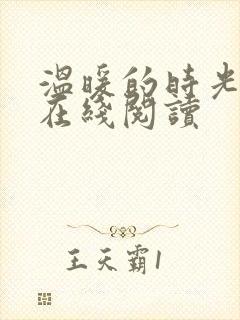 溫暖的時光
在綫閱讀
王天霸1